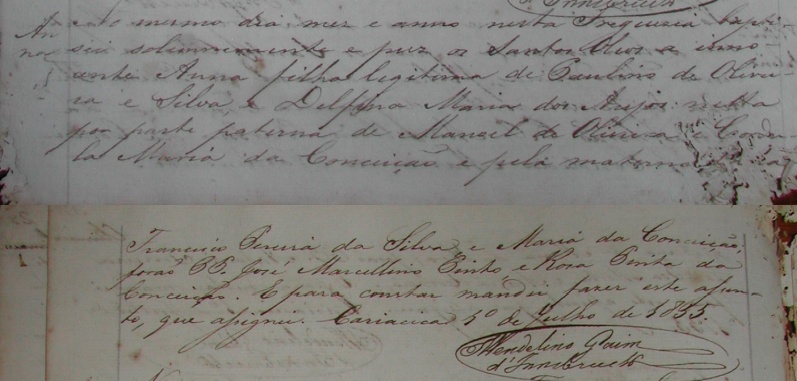 d'Innsbruck
An
na
este mesmo dia mez e anno nesta Freguezia bapti-
sei solemnemente e puz os Santos Oleos a inno
cente Anna filha legitima de Paulino de Olivei-
ra e Silva e Delfina Maria dos Anjos: netta
por parte paterna de Manoel de Oliveira e
la Maria da Conceição e pela materna
Francisco Pereira da Silva e Maria da Conceição,
forão PP. José Marcellino Pinto e Rosa Pinta da
Conceição. E para constar mandei fazer este assen-
to, que assignei. Cariacica 1º de Julho de 1855.
Wendelino Gaim
d'Innsbruck